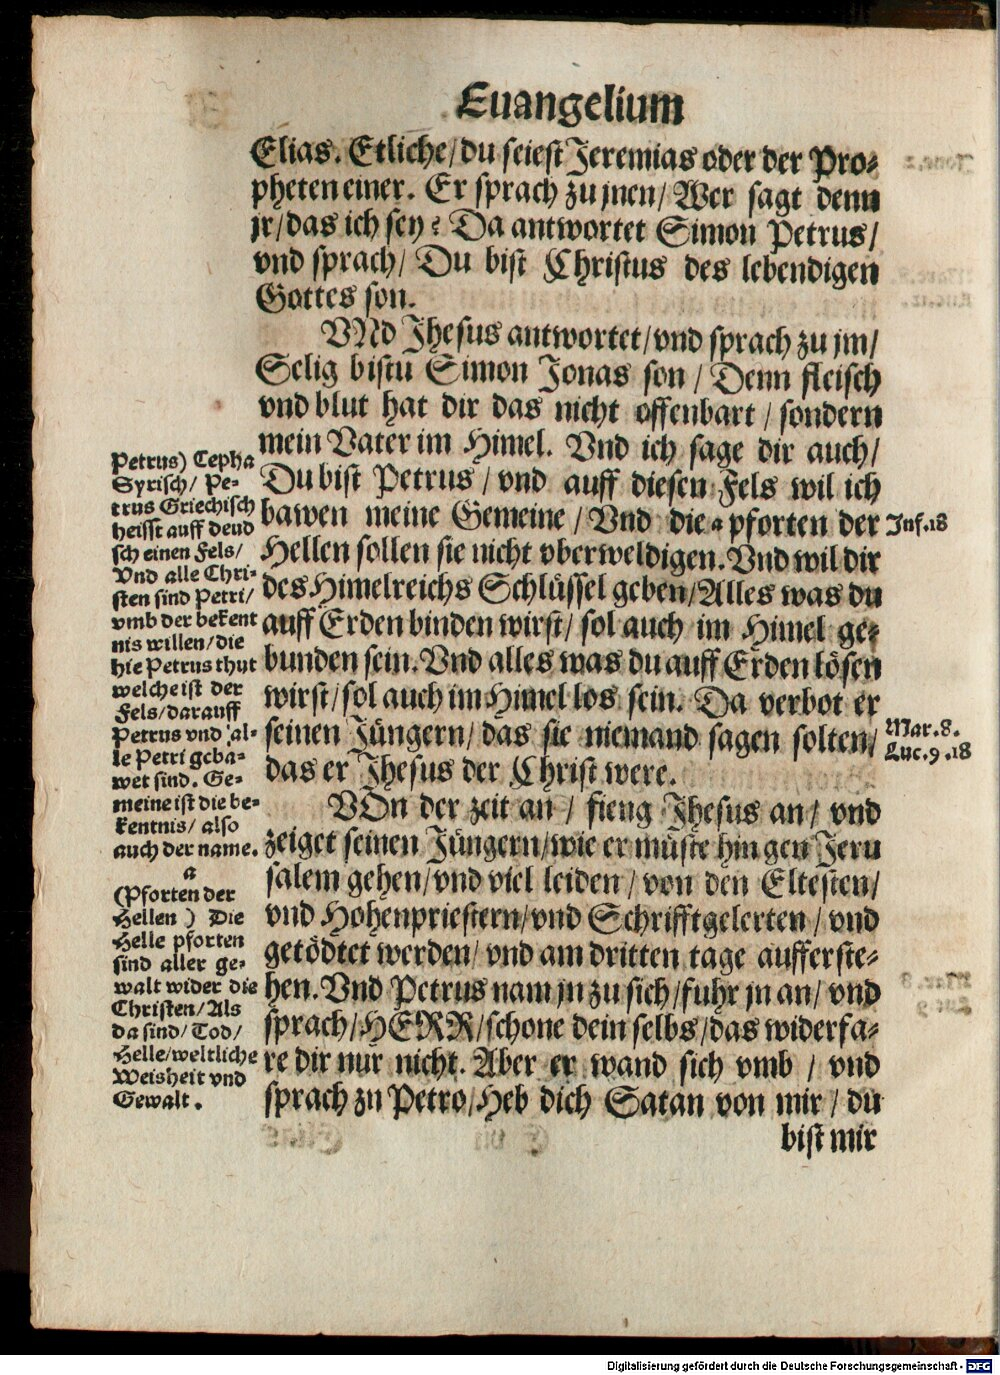 Euangelium
Elias. Etliche/du seiest Jeremias oder der Pro⸗
pheten einer. Er sprach zu jnen/ Wer sagt denn
jr/das ich sey? Da antwortet Simon Petrus/
vnd sprach/ Du bist Christus des lebendigen
Gottes son.
VNd Jhesus antwortet/vnd sprach zu jm/
Selig bistu Simon Jonas son / Denn fleisch
vnd blut hat dir das nicht offenbart / sondern
mein Vater im Himel. Vnd ich sage dir auch/
Du bist Petrus / vnd auff diesen Fels wil ich
bawen meine Gemeine / Vnd die a pforten der
Hellen sollen sie nicht vberweldigen. Vnd wil dir
des Himelreichs Schlüssel geben/Alles was du
auff Erden binden wirst/ sol auch im Himel ge⸗
bunden sein. Vnd alles was du auff Erden lösen
wirst/sol auch im Himel los sein. Da verbot er
seinen Jüngern/das sie niemand sagen solten/
das er Jhesus der Christ were.
VOn der zeit an / fieng Jhesus an/ vnd
zeiget seinen Jüngern/wie er müste hin gen Jeru
salem gehen/vnd viel leiden/ von den Eltesten/
vnd Hohenpriestern/vnd Schrifftgelerten / vnd
getödtet werden/ vnd am dritten tage aufferste⸗
hen. Vnd Petrus nam jn zu sich/fuhr jn an/ vnd
sprach/HERR/schone dein selbs/das widerfa⸗
re dir nur nicht. Aber er wand sich vmb / vnd
sprach zu Petro/Heb dich Satan von mir / du
bist mir
Petrus) Cepha
Syrisch/ Pe⸗
trus Griechisch
heisst auff deud
sch einen Fels/
Vnd alle Chri⸗
sten sind Petri/
vmb der bekent
nis willen/die
hie Petrus thut
welche ist der
Fels/darauff
Petrus vnd al⸗
le Petri geba⸗
wet sind. Ge⸗
meine ist die be⸗
kentnis/ also
auch der name.
a
(Pforten der
Hellen) Die
Helle pforten
sind aller ge⸗
walt wider die
Christen/Als
da sind/Tod/
Helle/weltliche
Weisheit vnd
Gewalt.
Inf.18
Mar.8.
Luc.9.18
Digitalisierung gefördert durch die Deutsche Forschungsgemeinschaft - DFG